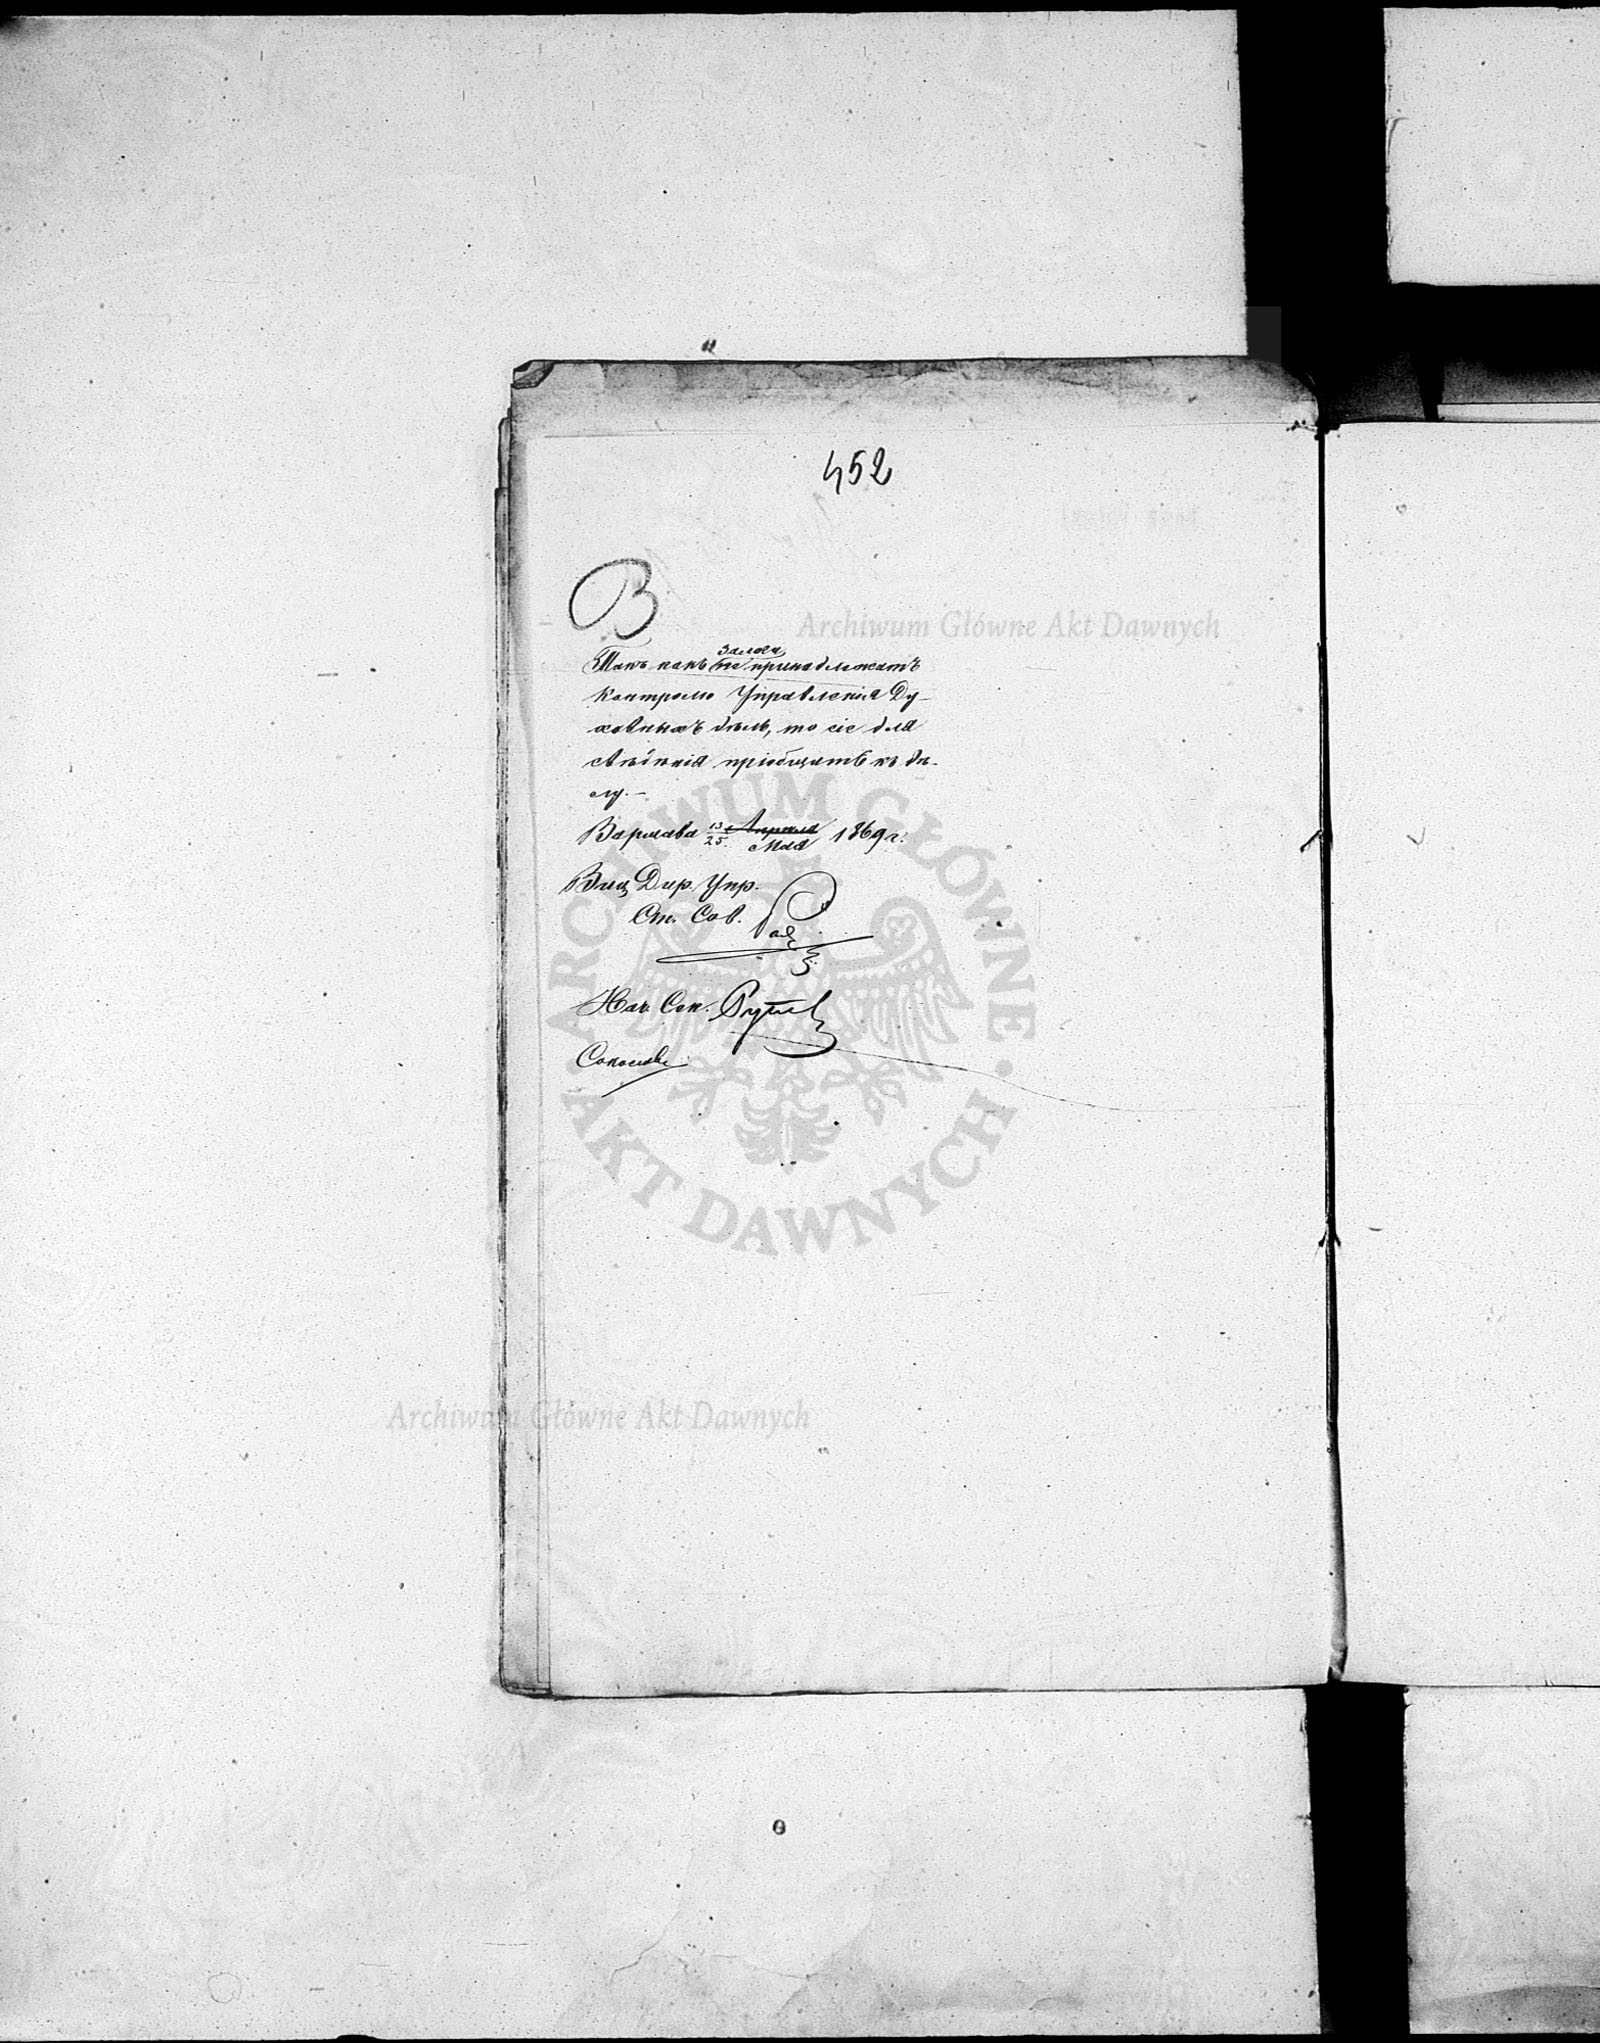 452
В
залоги
Такъ какъ не принадлежатъ
контролю Управленія Ду-
ховныхъ дѣлъ, то сіе для
свѣдѣнія пріобщить къ дѣ-
лу.—
Варшава 13/25 Апрѣля 1869 г.
Мая
Виц Дир. Упр.
Ст. Сов.
Нач. Сек.
Archiwum Główne Akt Dawnych
ARCHIWUM GŁÓWNE · AKT DAWNYCH ·
Archiwum Główne Akt Dawnych